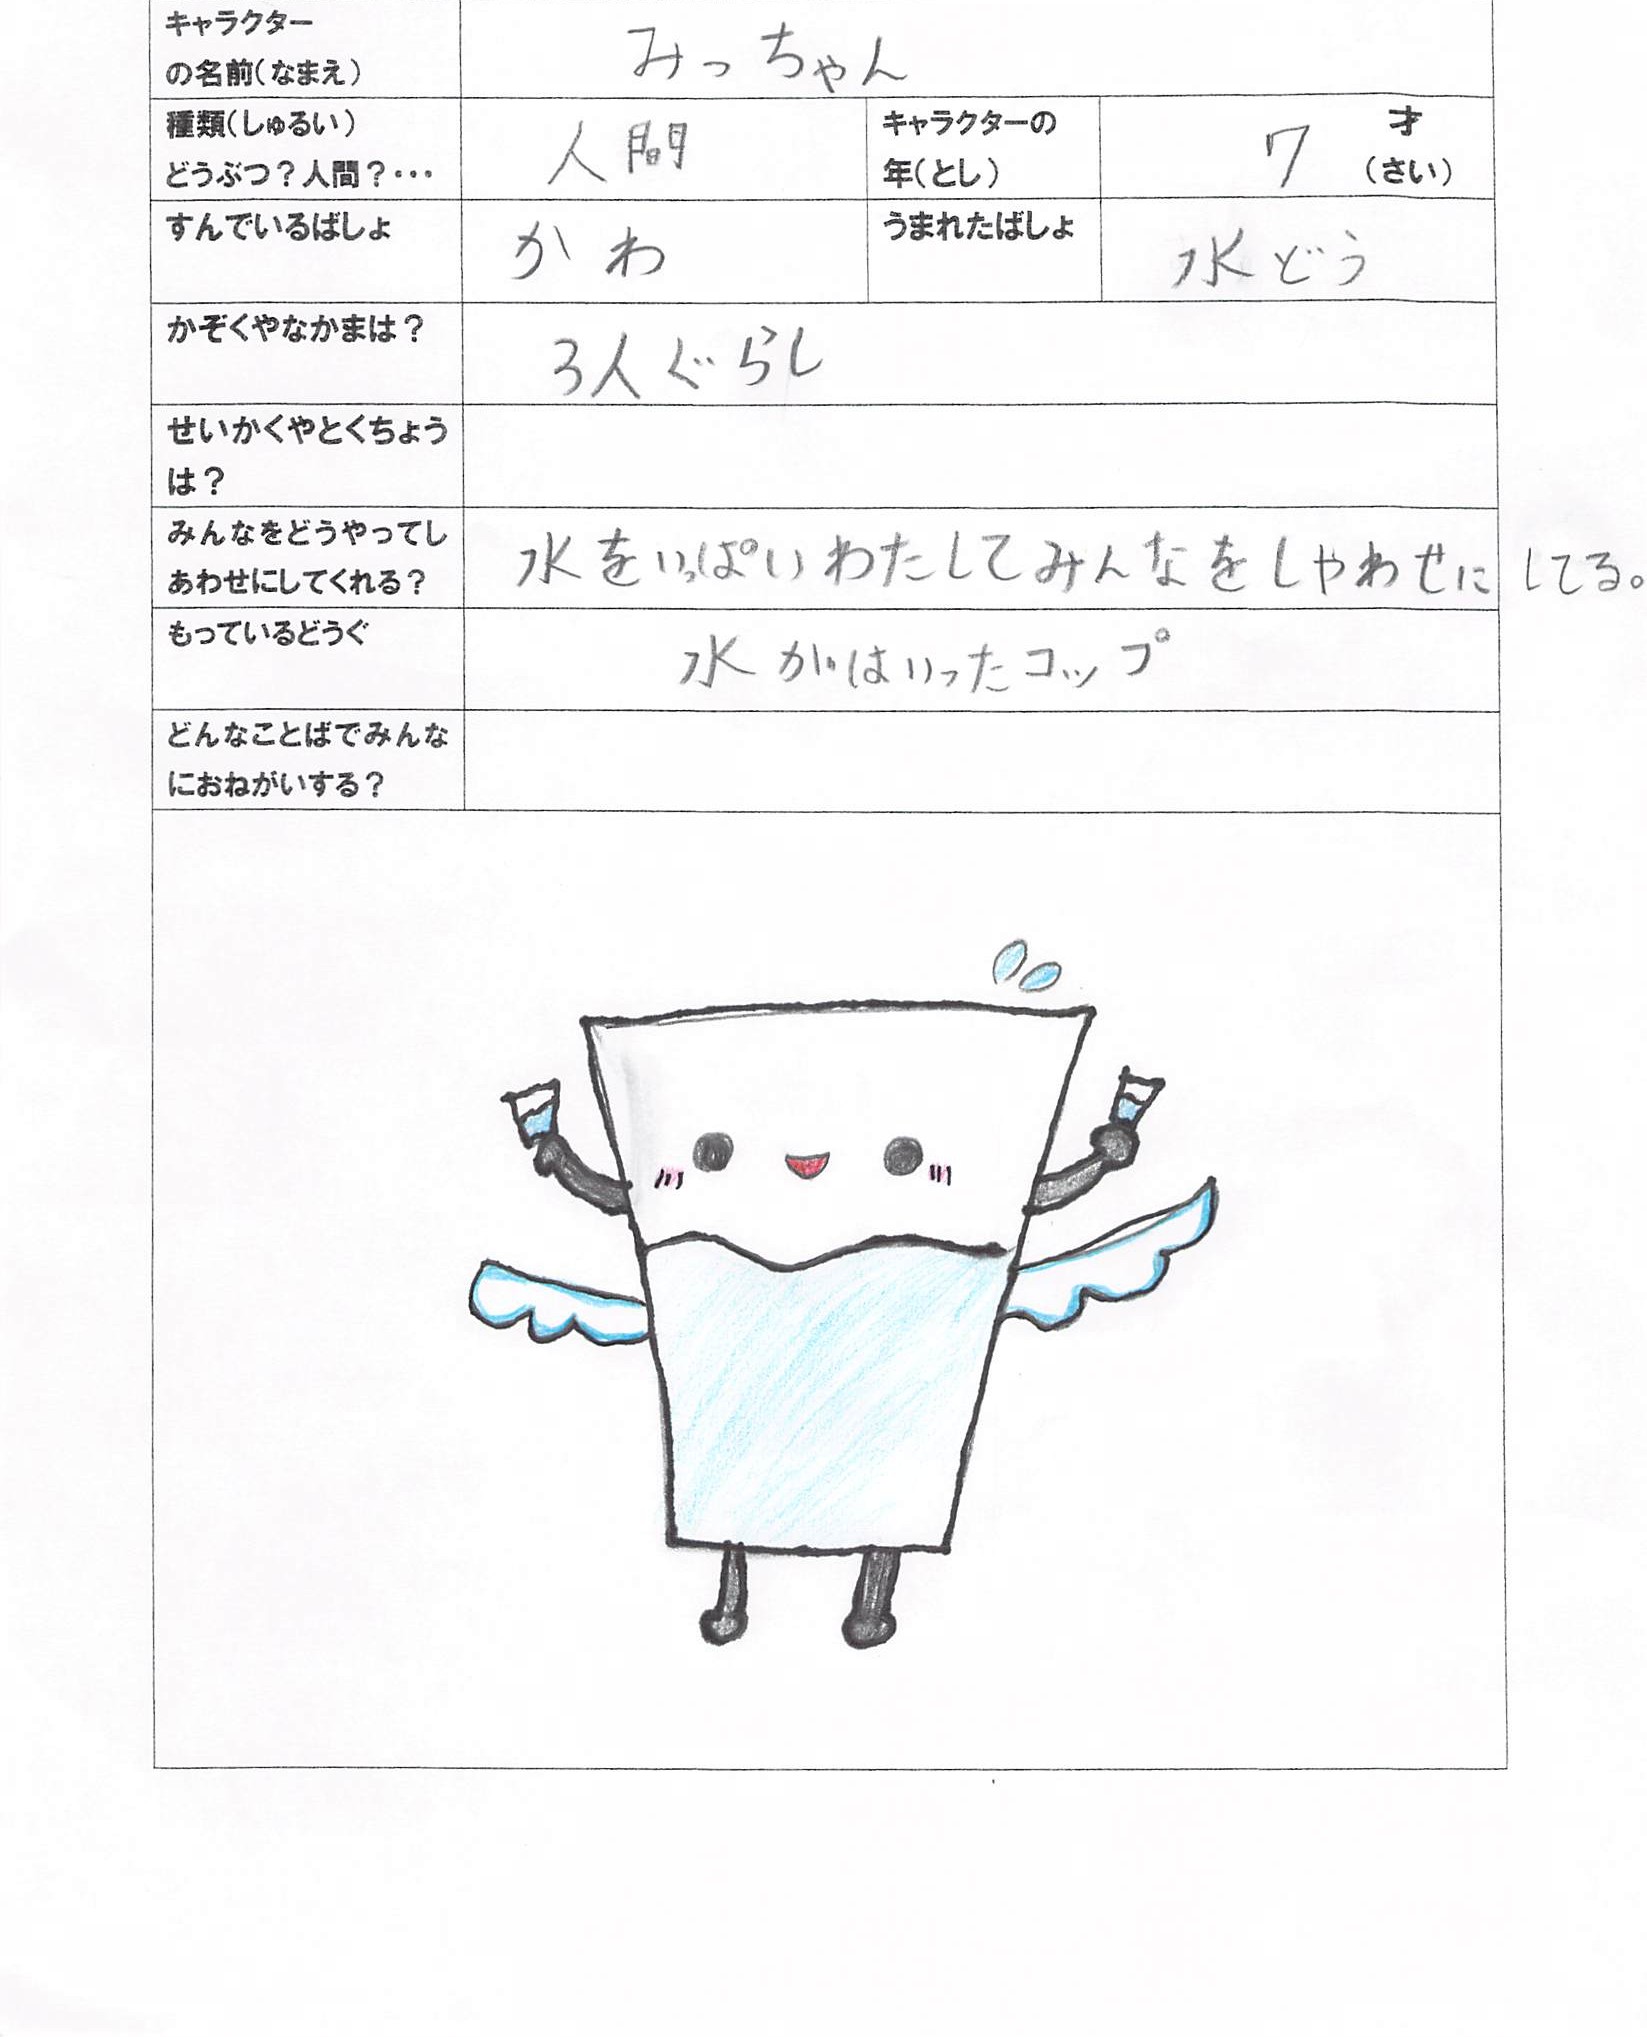 キャラクター
の名前(なまえ)
みっちゃん
種類(しゅるい)
どうぶつ?人間?・・・
人間
キャラクターの
年(とし)
7
才
(さい)
すんでいるばしょ
かわ
うまれたばしょ
水どう
かぞくやなかまは?
3人ぐらし
せいかくやとくちょう
は?
みんなをどうやってし
あわせにしてくれる?
水をいっぱいわたしてみんなをしやわせにしてる。
もっているどうぐ
水がはいったコップ
どんなことばでみんな
におねがいする?